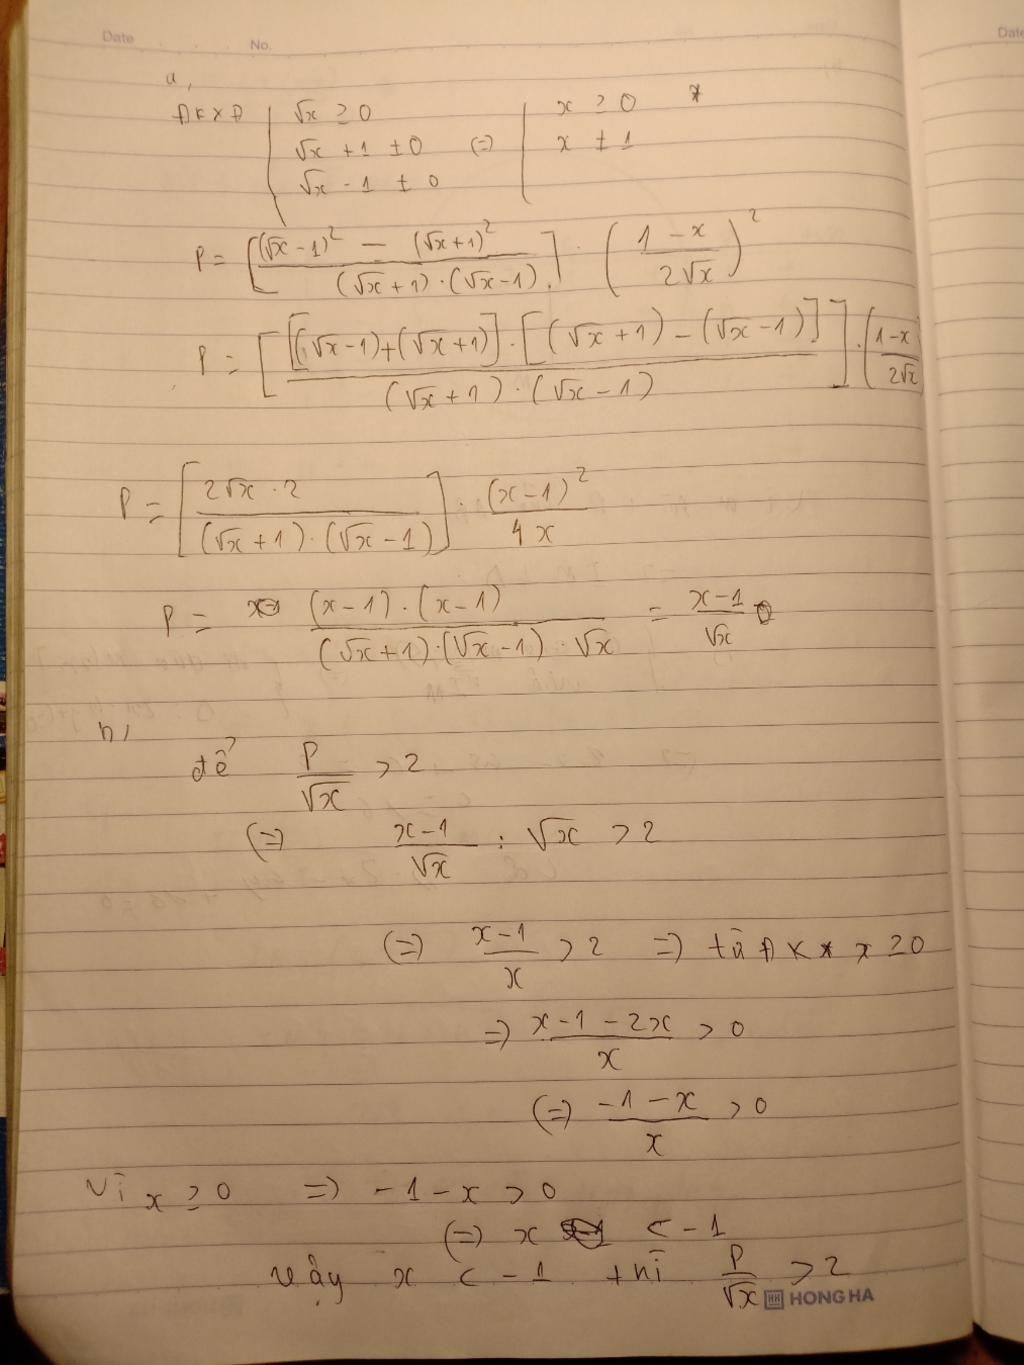 Date No. Date
a,
ĐKXĐ | √x ≥ 0 | x ≥ 0 *
√x + 1 ≠ 0 (=) x ≠ 1
√x - 1 ≠ 0
P = [((√x - 1)² - (√x + 1)²) / ((√x + 1) · (√x - 1))] · ((1 - x) / (2√x))²
P = [([(√x - 1) + (√x + 1)] · [(√x + 1) - (√x - 1)]) / ((√x + 1) · (√x - 1))] · ((1 - x) / (2√x)
P = [(2√x · 2) / ((√x + 1) · (√x - 1))] · (x - 1)² / 4x
P = ((x - 1) · (x - 1)) / ((√x + 1) · (√x - 1) · √x) = (x - 1) / √x
b,
để P / √x > 2
(=) (x - 1) / √x : √x > 2
(=) (x - 1) / x > 2 => từ ĐK * x ≥ 0
=> (x - 1 - 2x) / x > 0
(=) (-1 - x) / x > 0
Vì x ≥ 0 => -1 - x > 0
(=) x < -1
Vậy x < -1 thì P / √x > 2
HONG HA